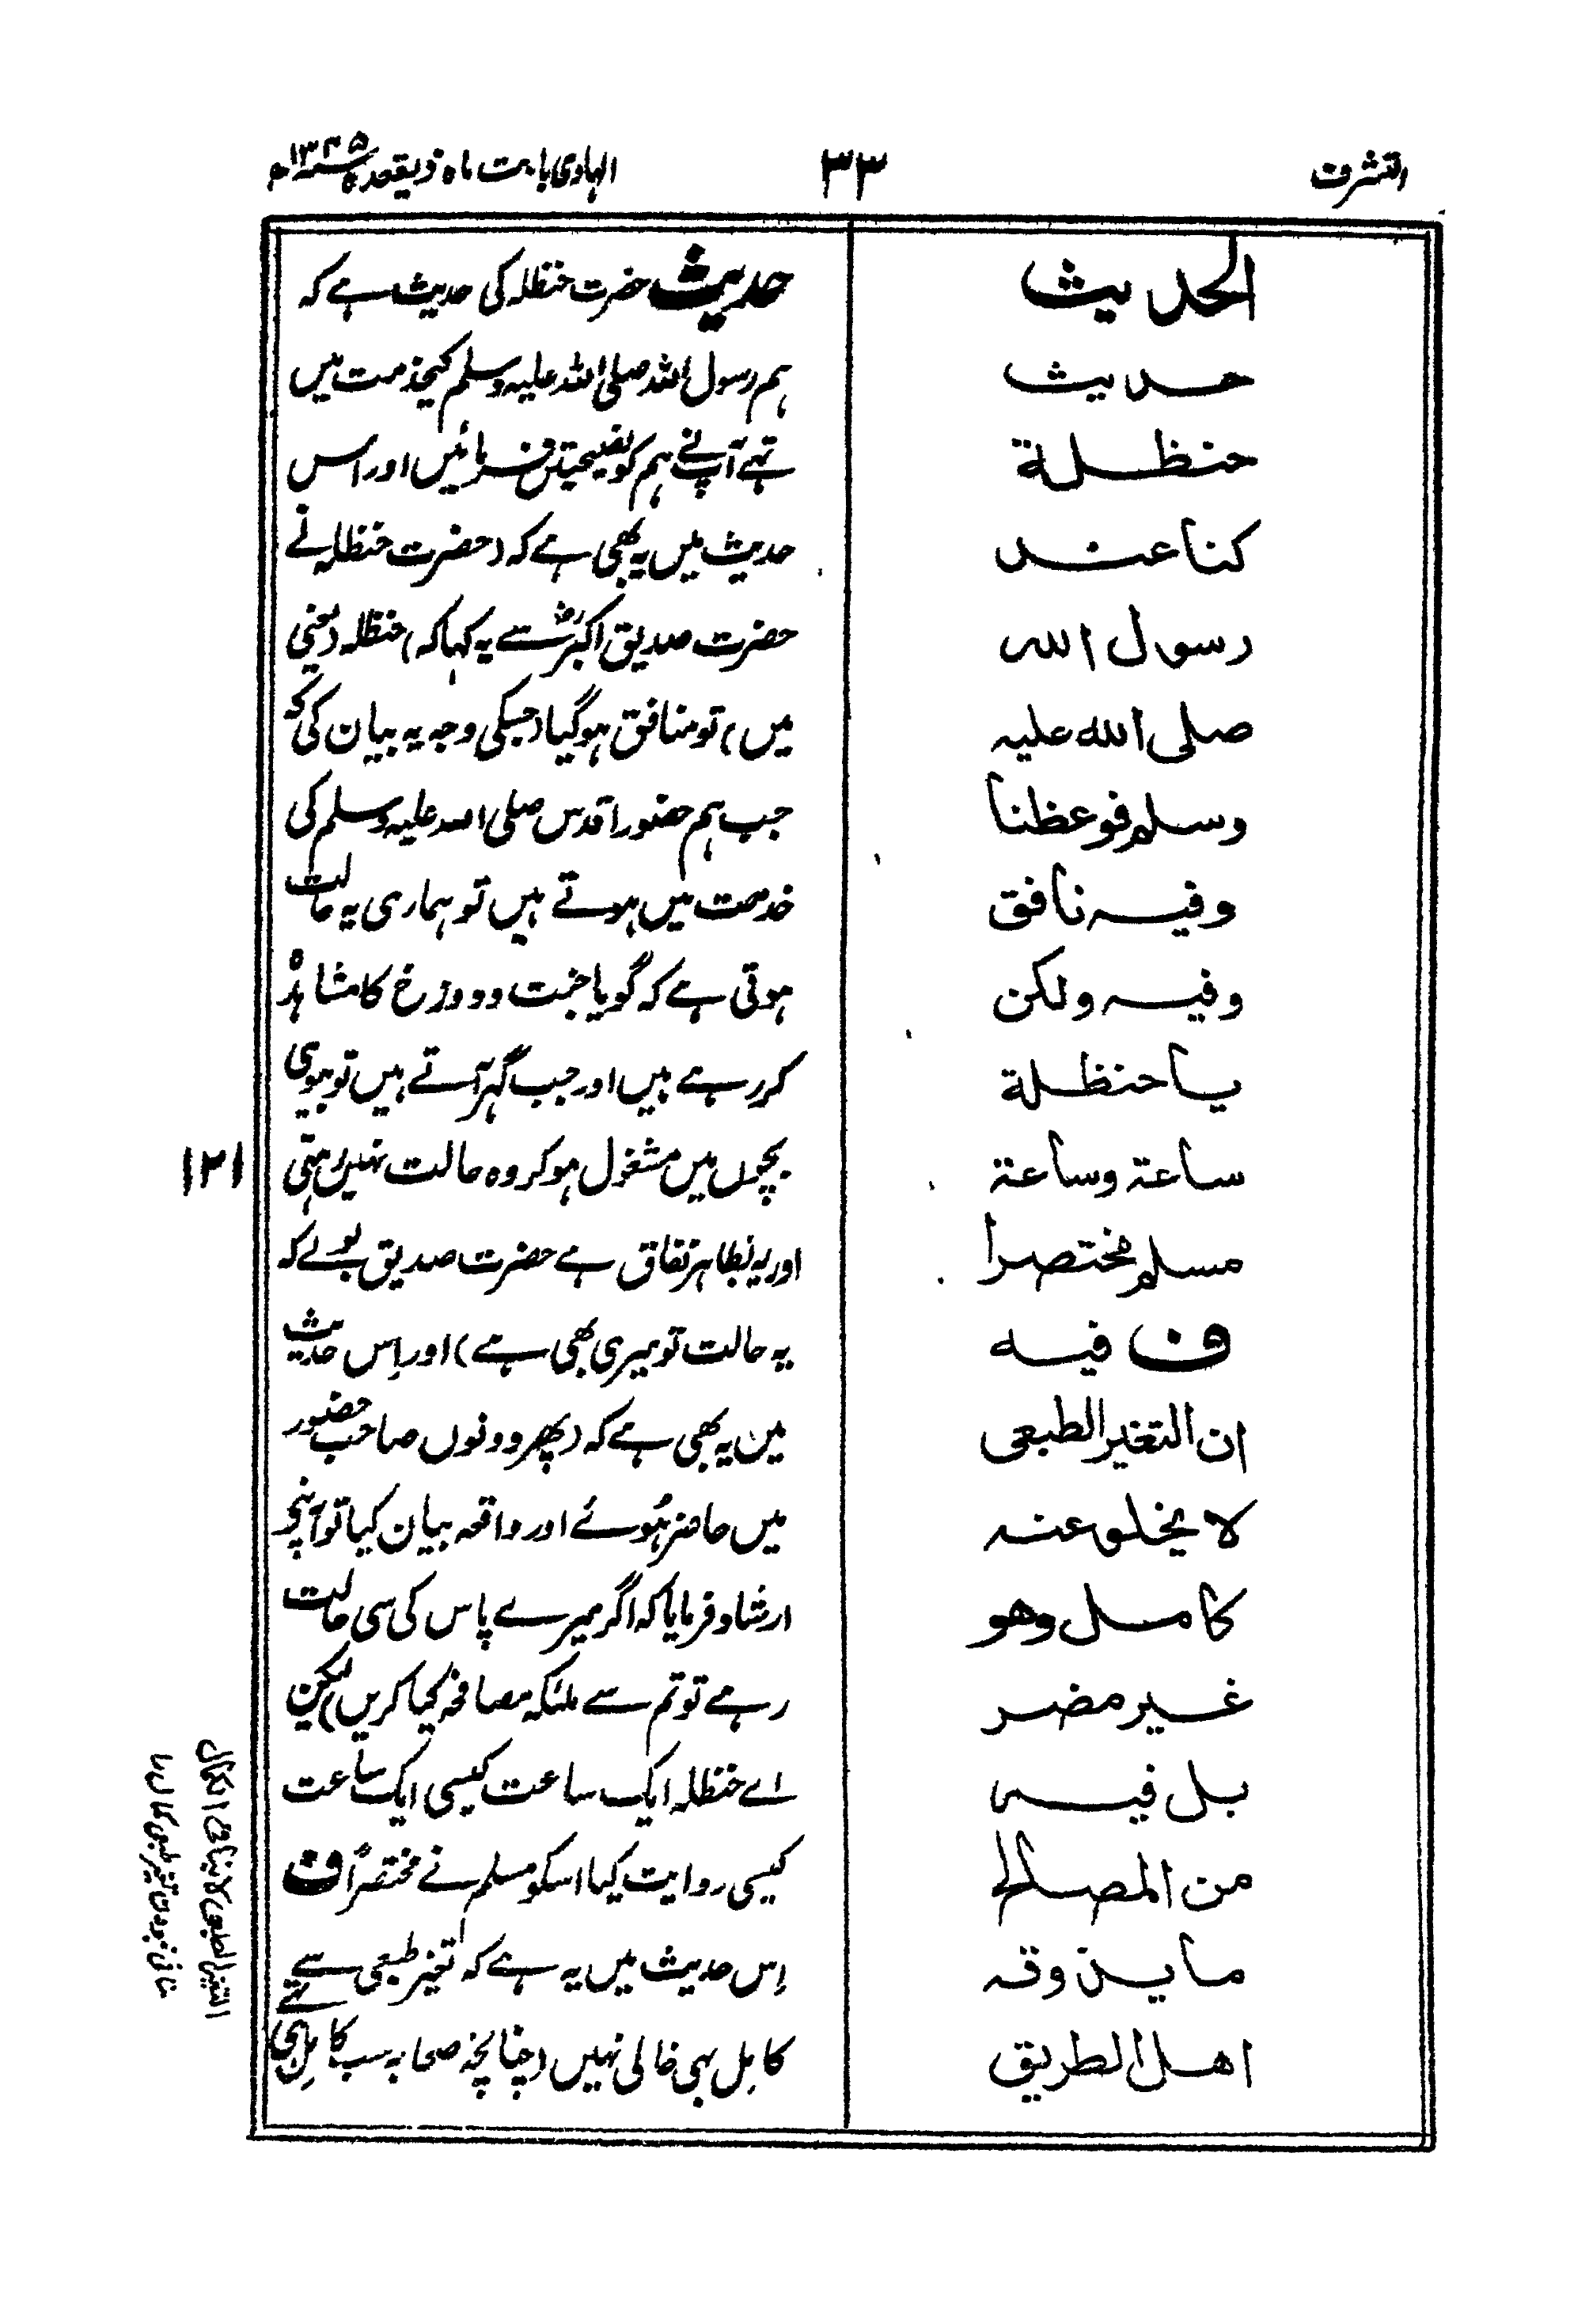 التشرف
۳۳
الہادی بابت ماہ ذیقعدہ ۱۳۴۵ھ
الحديث
حديث
حنظلة
كنا عند
رسول الله
صلى الله عليه
وسلم فوعظنا
وفيه نافق
وفيه ولكن
يا حنظلة
ساعة وساعة
مسلم مختصرا
ف فيه
ان التغير الطبعى
لا يخلو عنه
كامل وهو
غير مضر
بل فيه
من المصالح
ما يذوقه
اهل الطريق
حدیث حضرت حنظلہ کی حدیث ہے کہ
ہم رسول اللہ صلی اللہ علیہ وسلم کیخدمت میں
تہے آپنے ہم کو نصیحتیں فرمائیں اور اس
حدیث میں یہ بھی ہے کہ (حضرت حنظلہ نے
حضرت صدیق اکبرؓ سے یہ کہا کہ) حنظلہ (یعنی
میں) تو منافق ہوگیا (جسکی وجہ یہ بیان کی کہ
جب ہم حضور اقدس صلی اللہ علیہ وسلم کی
خدمت میں ہوتے ہیں تو ہماری یہ حالت
ہوتی ہے کہ گویا جنت و دوزخ کا مشاہدہ
کر رہے ہیں اور جب گہر آتے ہیں تو بیوی
بچوں میں مشغول ہو کر وہ حالت نہیں رہتی
اور یہ بظاہر نفاق ہے حضرت صدیق بولے کہ
یہ حالت تو میری بھی ہے) اور اِس حدیث
میں یہ بھی ہے کہ (پھر دونوں صاحب حضور
میں حاضر ہُوئے اور واقعہ بیان کیا تو آپنے
ارشاد فرمایا کہ اگر میرے پاس کی سی حالت
رہے تو تم سے ملٰئکہ مصافحہ کیا کریں) لیکن
اے حنظلہ ایک ساعت کیسی ایک ساعت
کیسی روایت کیا اسکو مسلم نے مختصراً ف
اِس حدیث میں یہ ہے کہ تغیر طبعی سے
کامِل بہی خالی نہیں (چنانچہ صحابہ سب کامِل ہی تہے
۱۲۱
التغير الطبعى لا ينافى الكمال